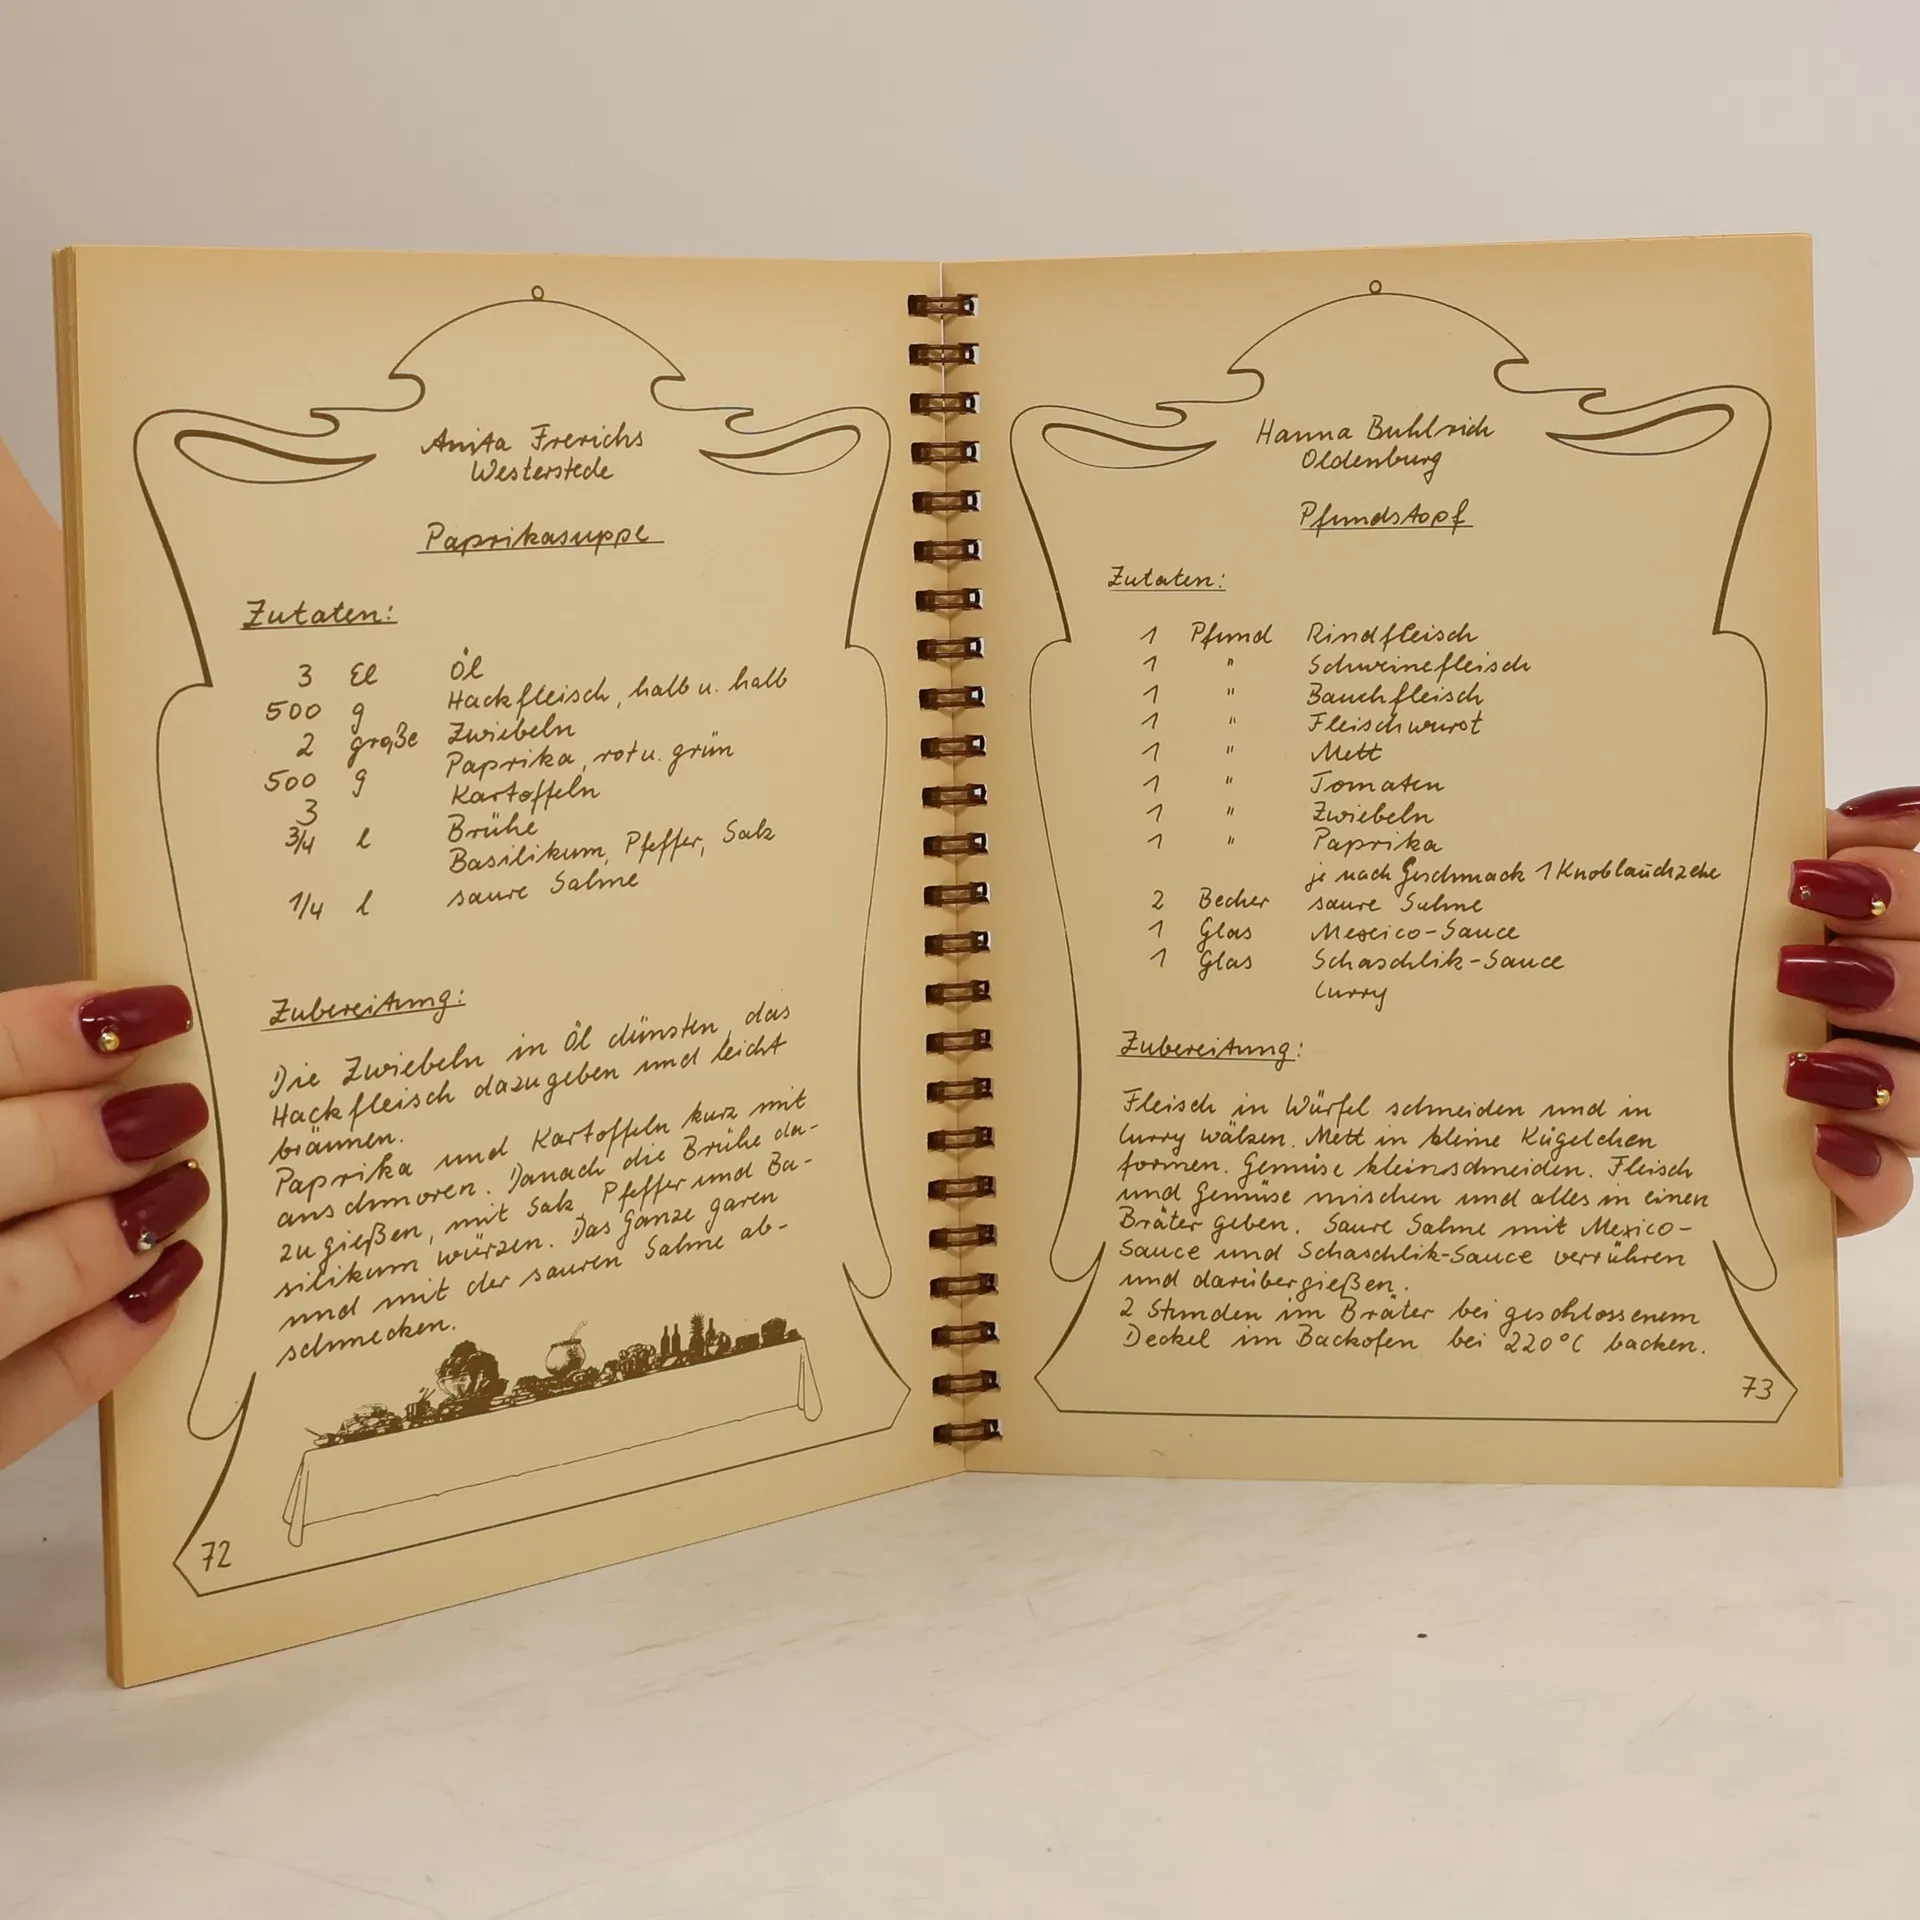 Anita Frerichs
Westerstede
Paprikasuppe
Zutaten:
3 El Öl
500 g Hackfleisch, halb u. halb
2 große Zwiebeln
500 g Paprika, rot u. grün
3 Kartoffeln
3/4 l Brühe
Basilikum, Pfeffer, Salz
1/4 l saure Sahne
Zubereitung:
Die Zwiebeln in Öl dünsten, das
Hackfleisch dazugeben und leicht
bräunen.
Paprika und Kartoffeln kurz mit
anschmoren. Danach die Brühe da-
zugießen, mit Salz, Pfeffer und Ba-
silikum würzen. Das Ganze garen
und mit der sauren Sahne ab-
schmecken.
72
Hanna Buhlrich
Oldenburg
Pfundstopf
Zutaten:
1 Pfund Rindfleisch
1 " Schweinefleisch
1 " Bauchfleisch
1 " Fleischwurst
1 " Mett
1 " Tomaten
1 " Zwiebeln
1 " Paprika
je nach Geschmack 1 Knoblauchzehe
2 Becher saure Sahne
1 Glas Mexico-Sauce
1 Glas Schaschlik-Sauce
Curry
Zubereitung:
Fleisch in Würfel schneiden und in
Curry wälzen. Mett in kleine Kügelchen
formen. Gemüse kleinschneiden. Fleisch
und Gemüse mischen und alles in einen
Bräter geben. Saure Sahne mit Mexico-
Sauce und Schaschlik-Sauce verrühren
und darübergießen.
2 Stunden im Bräter bei geschlossenem
Deckel im Backofen bei 220°C backen.
73